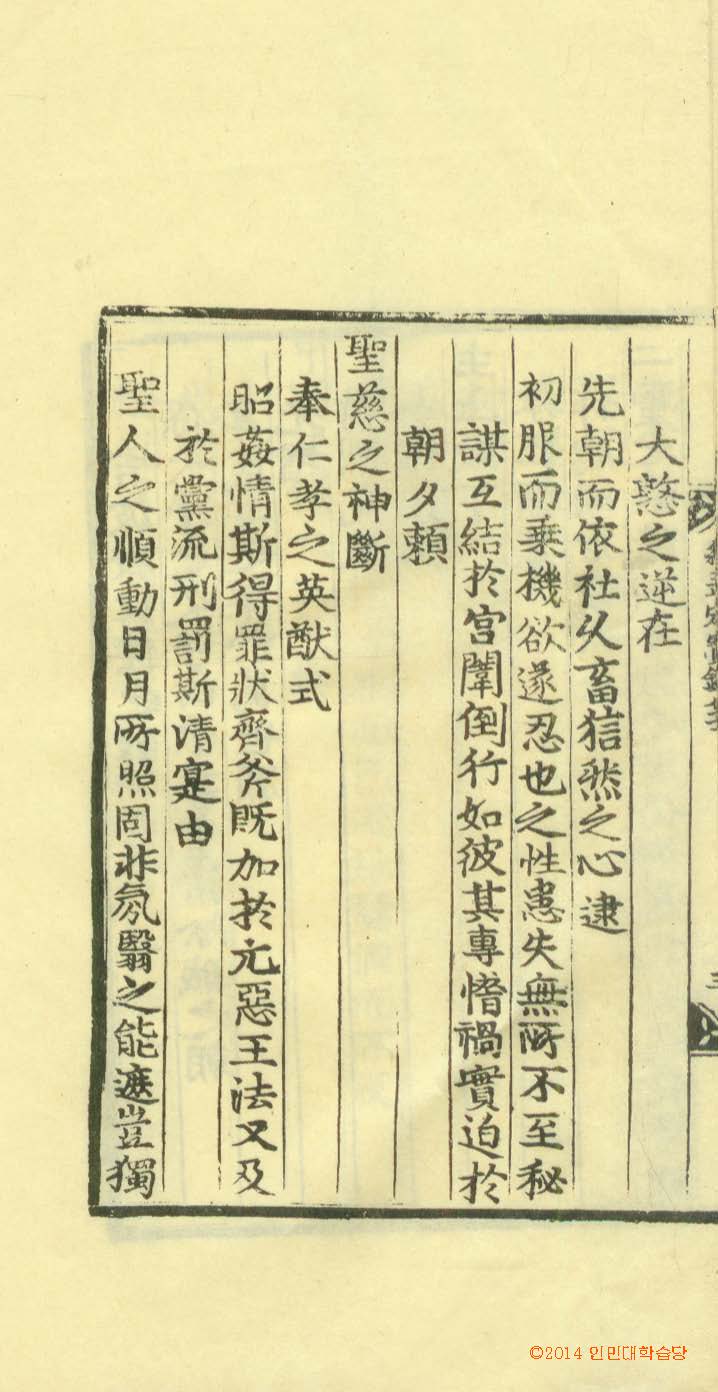 大憝之逆在
先朝而依社久畜狺然之心逮
初服而乗機欲遂忍也之性患失無所不至秘
謀互結於宮闈倒行如彼其專憯禍實迫於
朝夕賴
聖慈之神斷
奉仁孝之英猷式
昭姦情斯得罪狀齊斧旣加扵元惡王法又及
於黨流刑罰斯清寔由
聖人之順動日月所照固非氛翳之能遮豈獨
©2014 인민대학습당